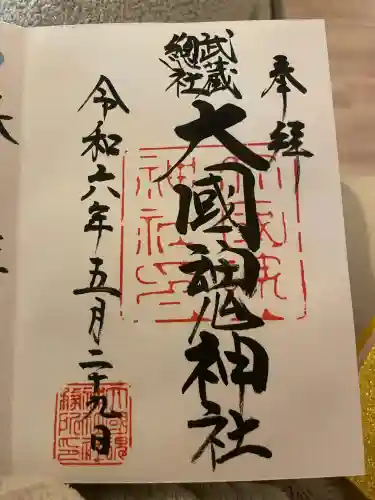 奉経
武蔵
總社
大國魂神社
令和六年五月二十九日